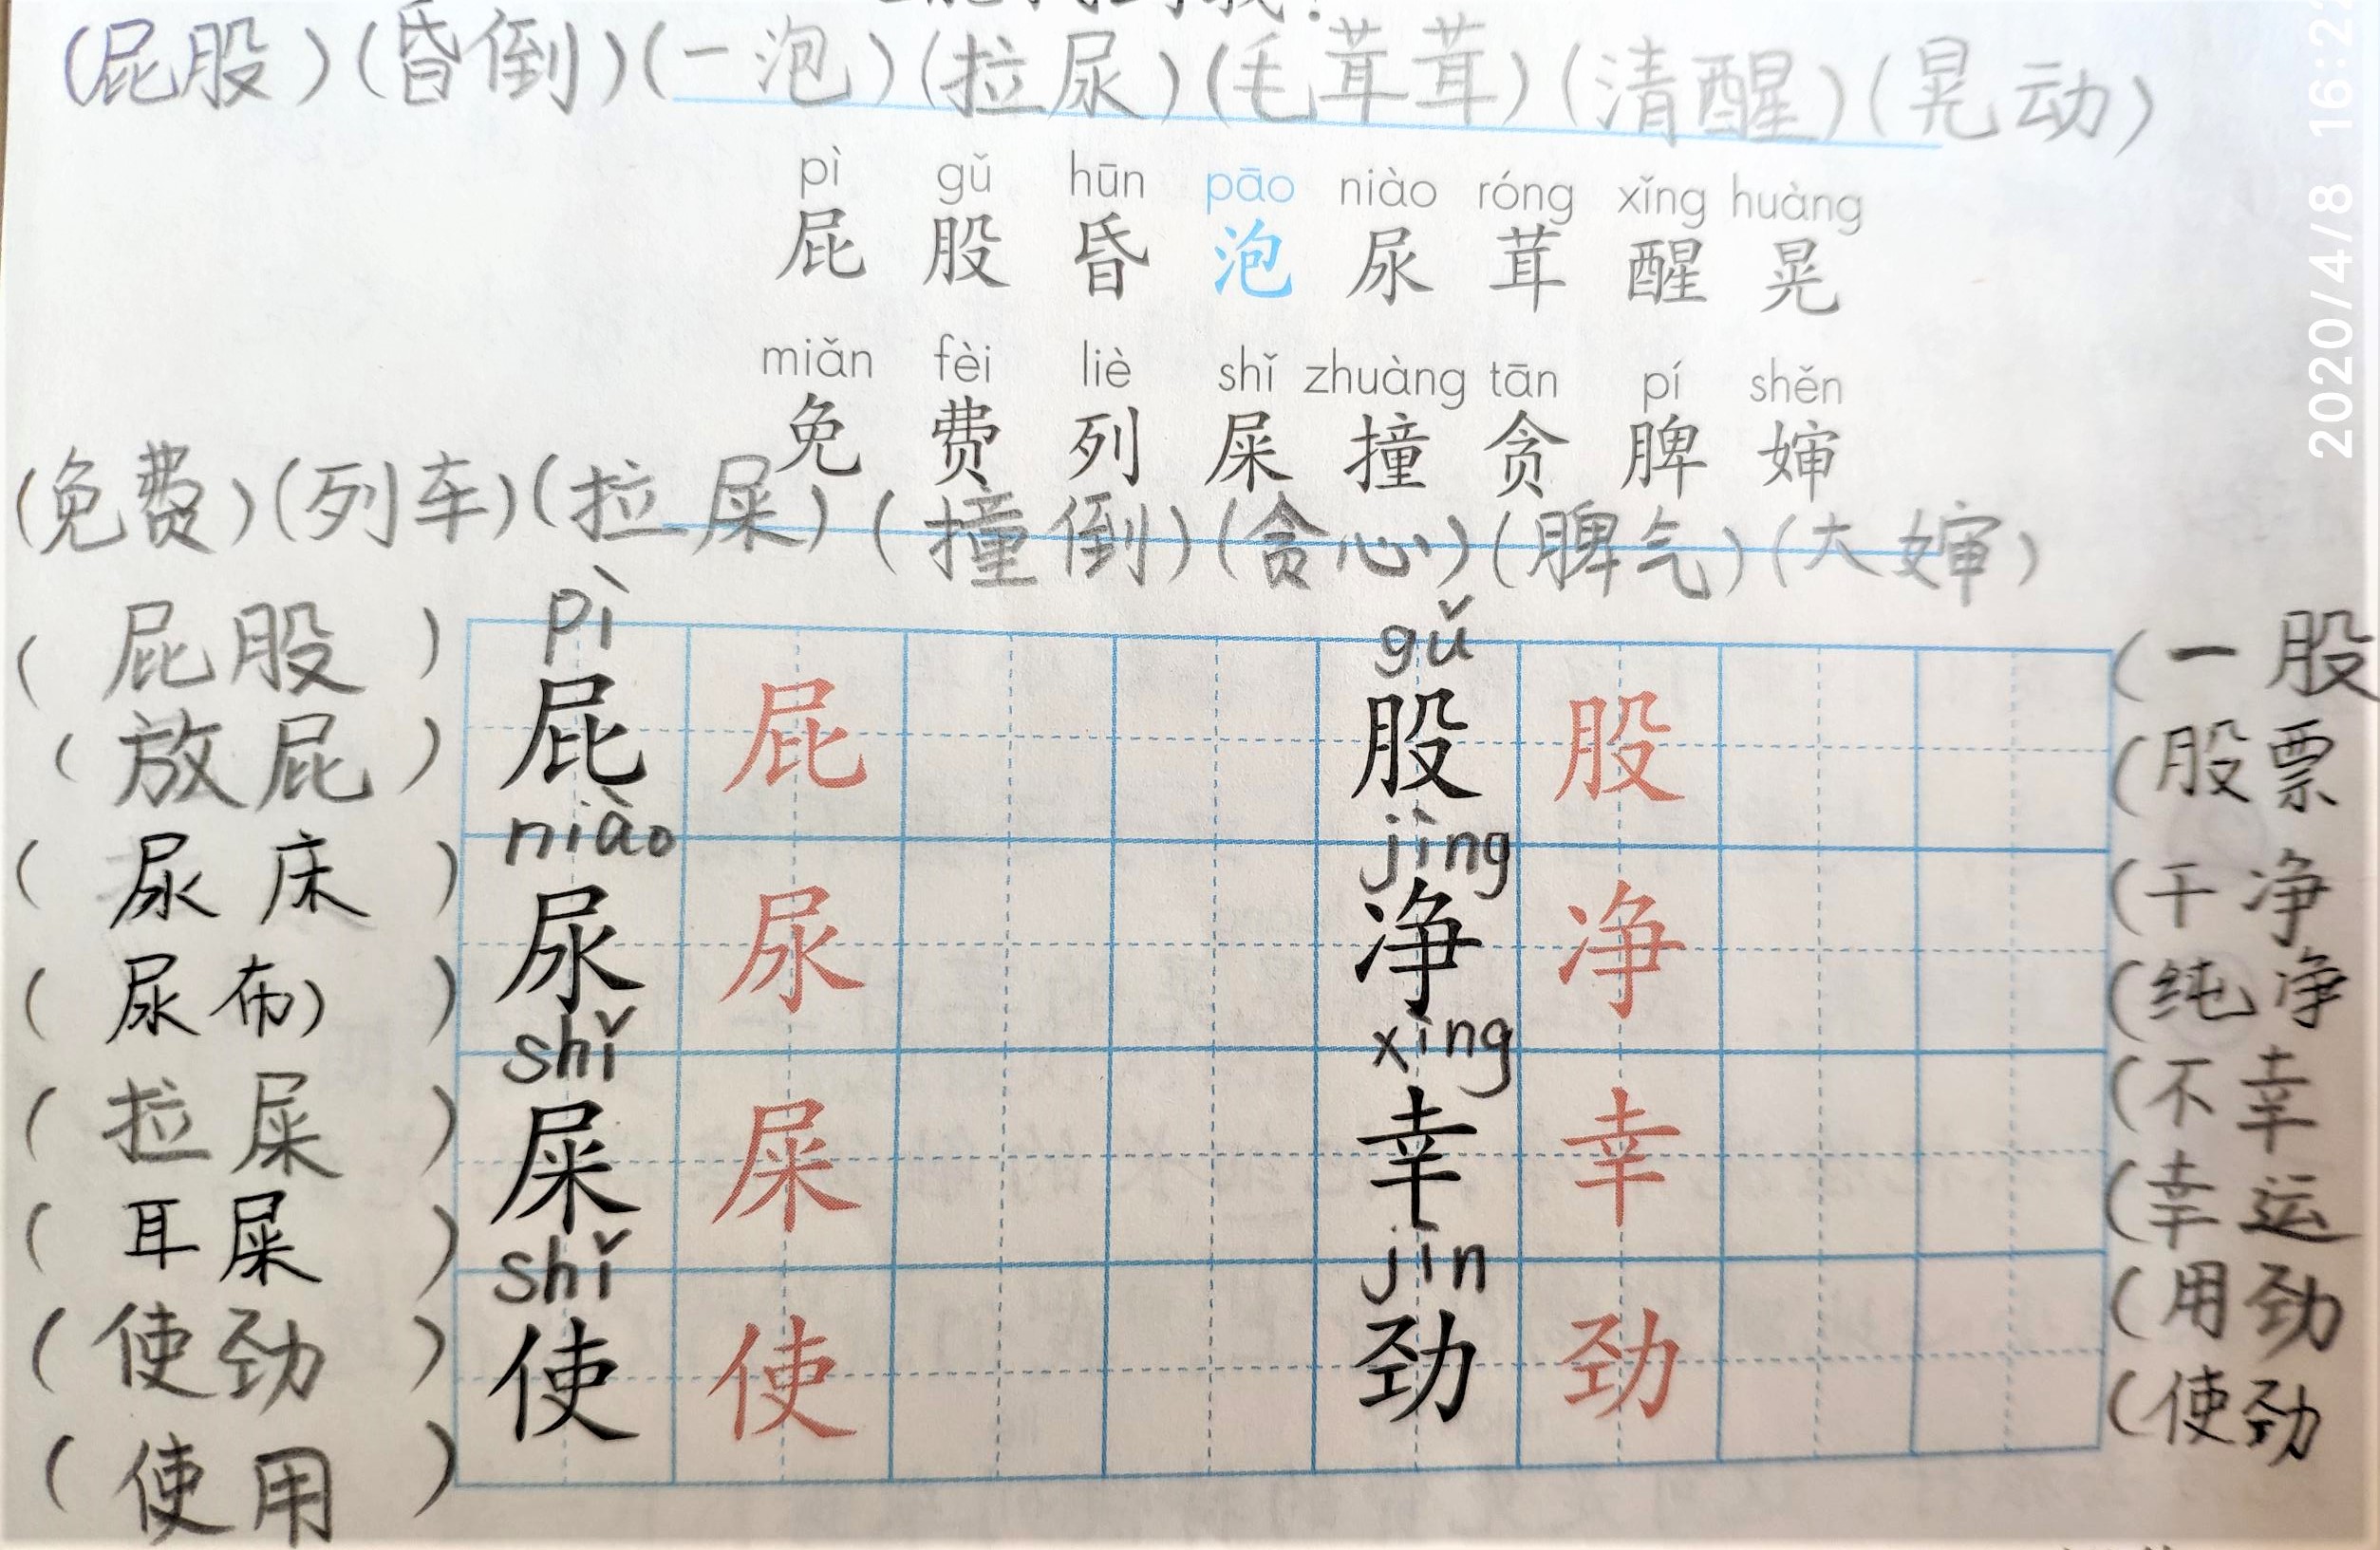 (屁股)(昏倒)(一泡)(拉尿)(毛茸茸)(清醒)(晃动)
pì gǔ hūn pāo niào róng xǐng huàng
屁 股 昏 泡 尿 茸 醒 晃
miǎn fèi liè shǐ zhuàng tān pí shěn
免 费 列 屎 撞 贪 脾 婶
(免费)(列车)(拉屎)(撞倒)(贪心)(脾气)(大婶)
pì gǔ
(屁股) 屁 屁 股 股 (一股
(放屁) (股票
niào jìng
(尿床) 尿 尿 净 净 (干净
(尿布)) (纯净
shǐ xìng
(拉屎) 屎 屎 幸 幸 (不幸
(耳屎) (幸运
shǐ jìn
(使劲) 使 使 劲 劲 (用劲
(使用) (使劲
2020/4/8 16:22